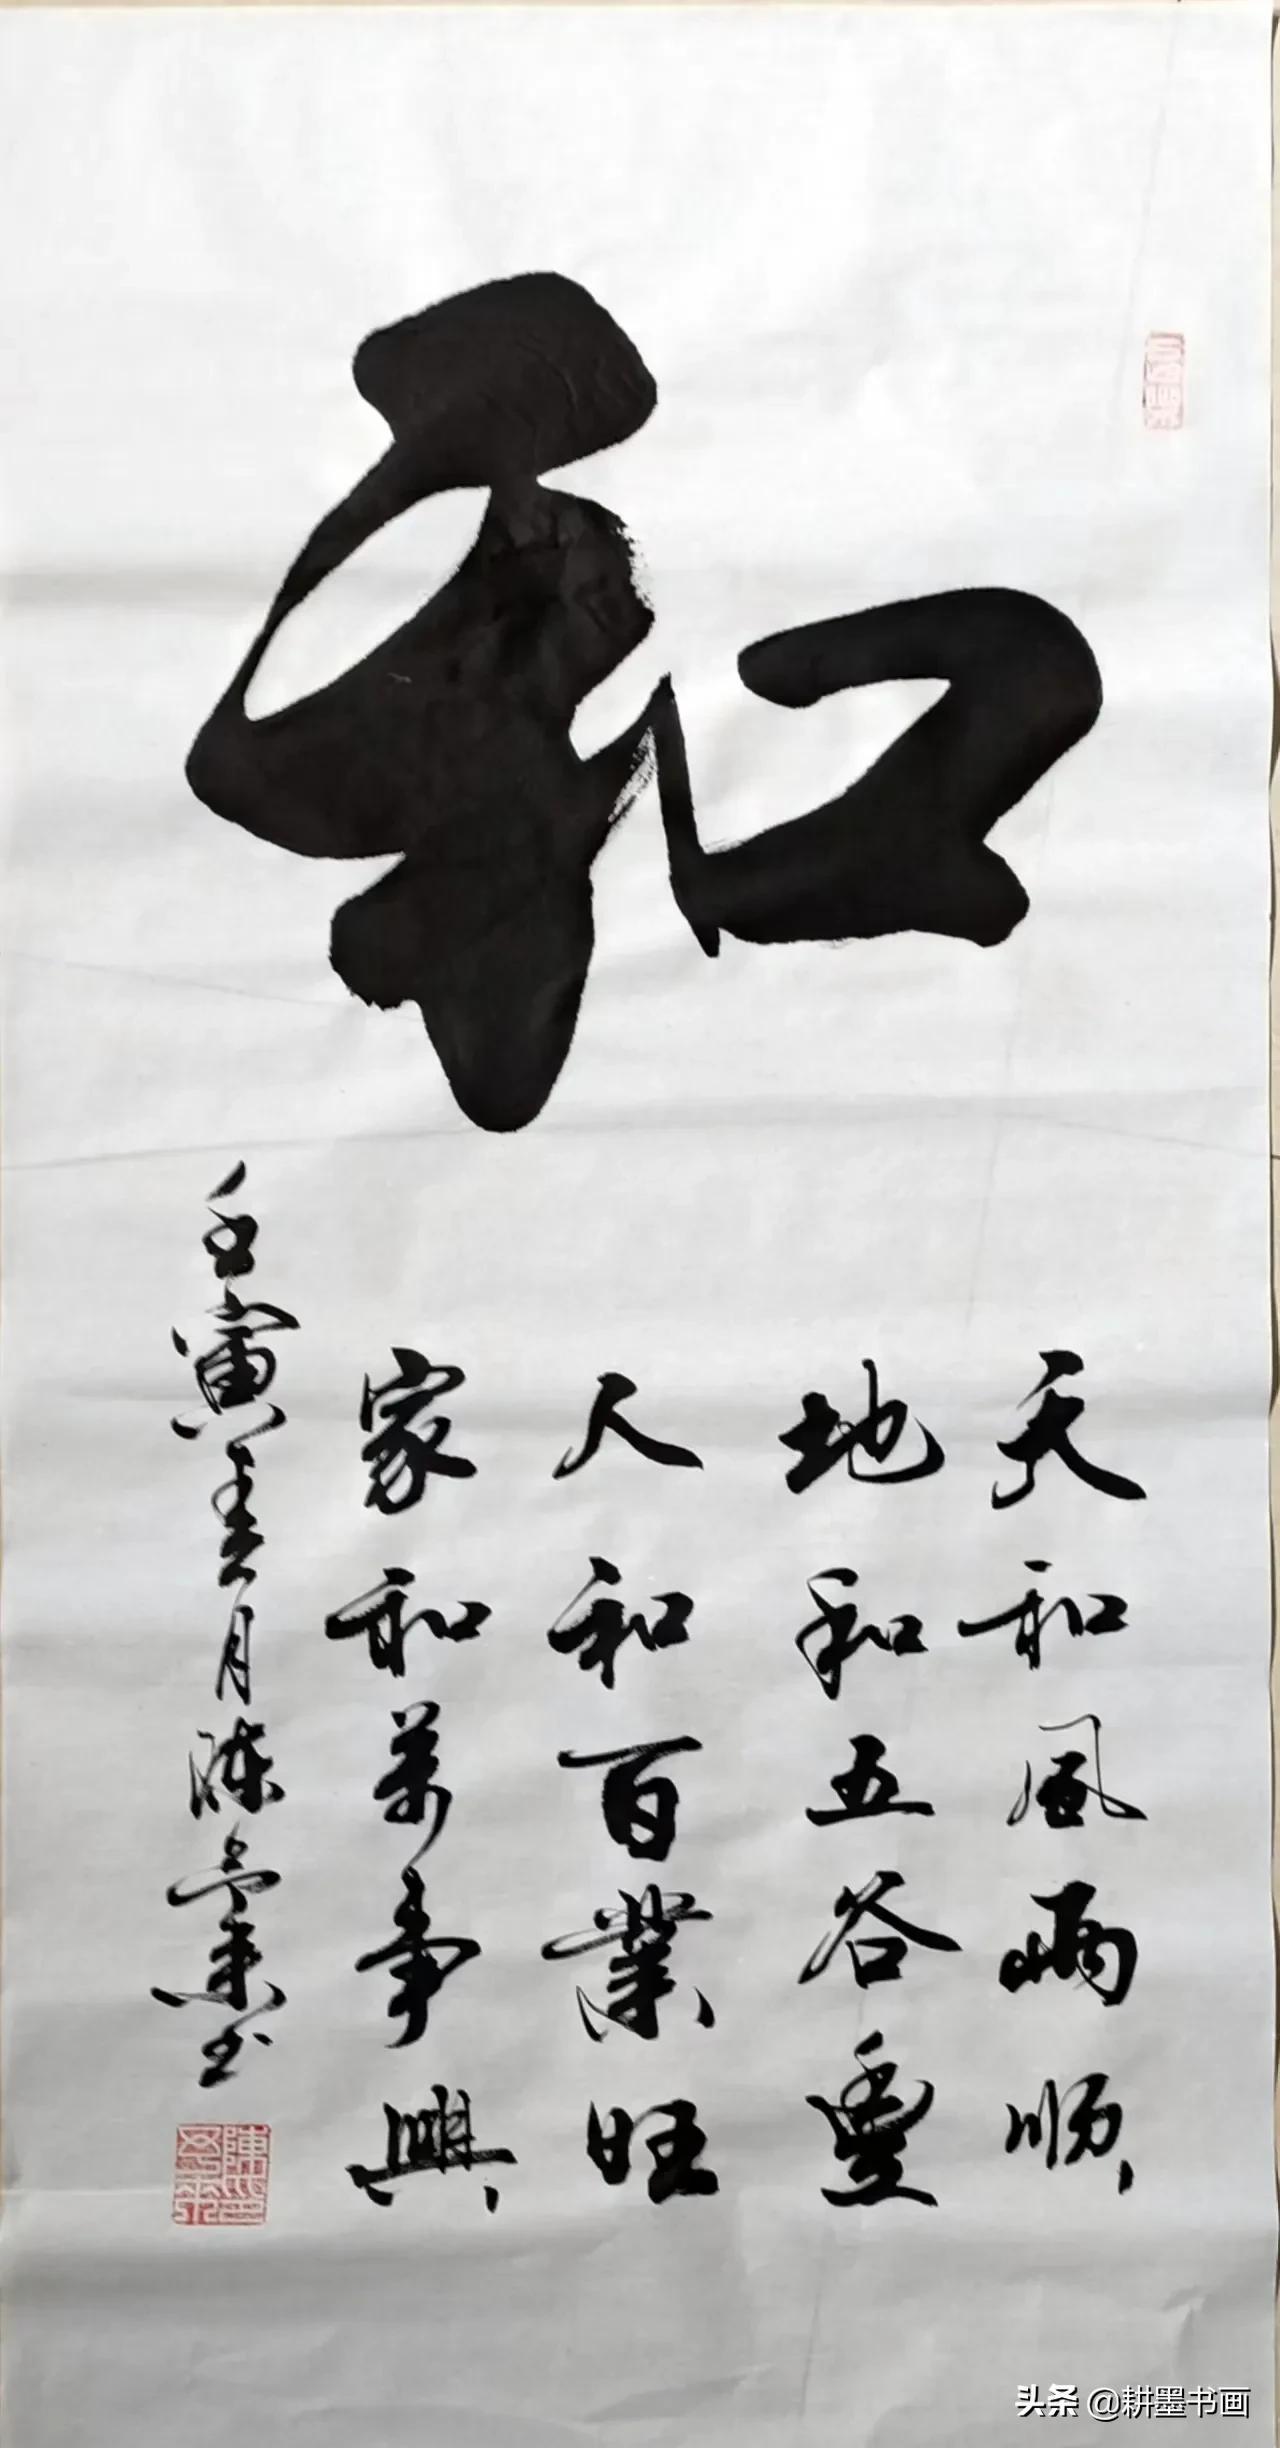 和
天和风雨顺
地和五谷豐
人和百業旺
家和萬事興
壬寅春月陈
头条 @耕墨书画